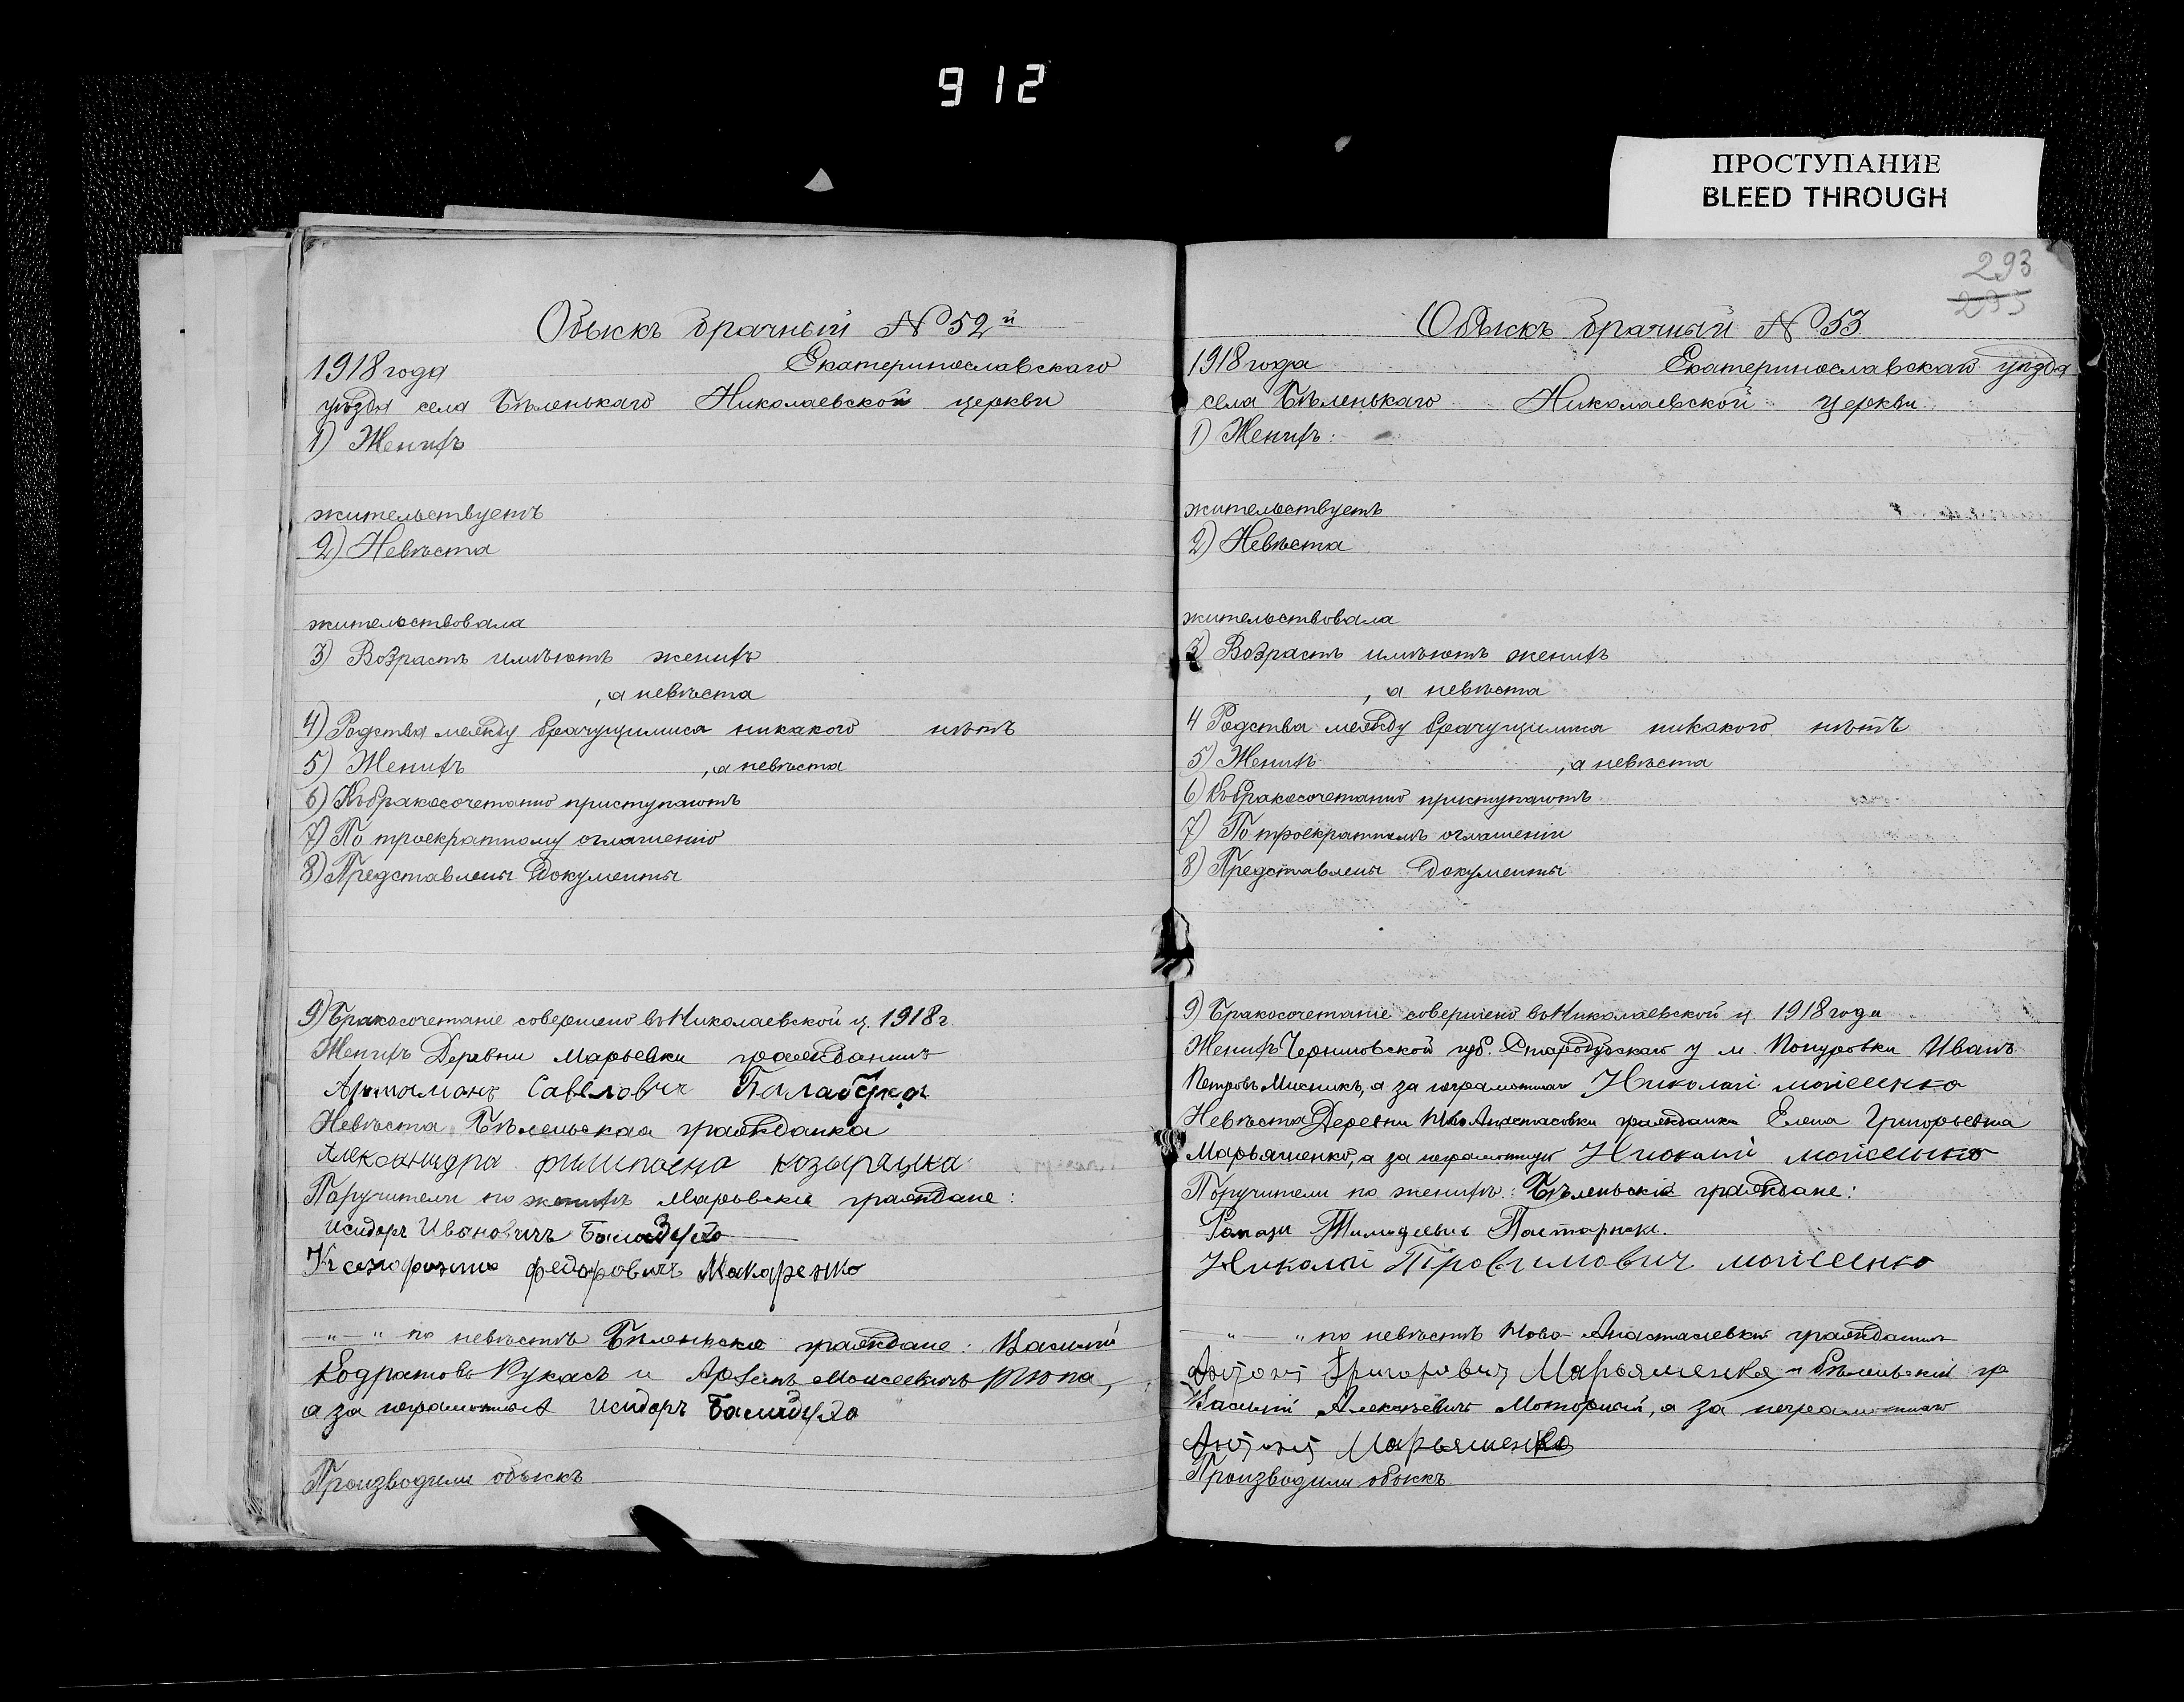 912
ПРОСТУПАНИЕ
BLEED THROUGH
Обыскъ брачный № 52й
1918 года Екатеринославскаго
уѣзда села Бѣленькаго Николаевской церкви
1) Женихъ
жительствуетъ
2) Невѣста
жительствовала
3) Возрастъ имѣютъ женихъ
, а невѣста
4) Родства между брачущимися никакого нѣтъ
5) Женихъ , а невѣста
6) Къ бракосочетанію приступаютъ
7) По троекратному оглашенію
8) Представлены документы
9) Бракосочетаніе совершено въ Николаевской ц. 1918 г.
Женихъ Деревни Марьевки гражданинъ
Артамонъ Савеловичъ
Невѣста Бѣленьская гражданка
Александра козырацка
Поручители по женихѣ Марьевскіе граждане:
Исидоръ Ивановичъ
федоровичъ Макаренко
—"—" по невѣстѣ Бѣленьскіе граждане: Василій
Кодратовъ Кукасъ и Моисеевичъ
а за неграмотныхъ Исидоръ
Производили обыскъ
293
293
Обыскъ брачный № 53
1918 года Екатеринославскаго уѣзда
села Бѣленькаго Николаевской церкви
1) Женихъ:
жительствуетъ
2) Невѣста
жительствовала
3) Возрастъ имѣютъ женихъ
, а невѣста
4 Родства между брачущимися никакого нѣтъ
5) Женихъ , а невѣста
6) Къ бракосочетанію приступаютъ
7) По троекратномъ оглашеніи
8) Представлены документы
9) Бракосочетаніе совершено въ Николаевской ц. 1918 года
Женихъ Черниговской губ. Стародубскаго у м. Понуровки Иванъ
Петровъ Мисникъ, а за неграмотнаго Николай мойсенко
Невѣста Деревни гражданка Елена Григорьевна
Марьяшенко, а за неграмотную мойсенко
Поручители по женихѣ: Бѣленьскіе граждане:
Тимофеевичъ
Николай мойсенко
—"—" по невѣстѣ Ново-Анастасіевки гражданинъ
Антонъ Григоровичъ Марьяшенко и Бѣленьскій гр
Василій Алексѣевичъ Моторный, а за неграмотнаго
Антонъ Марьяшенко
Производили обыскъ